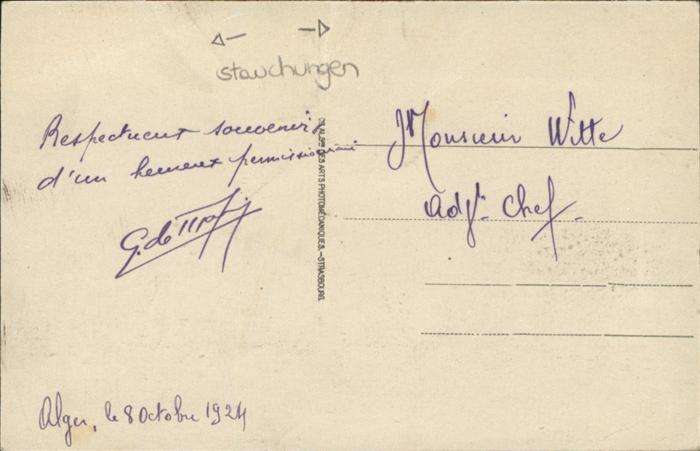 stauchungen
Respectueux souvenir
d'un heureux permissionnaire
Alger, le 8 Octobre 1924
Monsieur Witte
Adjt. Chef
ARTS PHOTOMÉCANIQUES. – STRASBOURG.